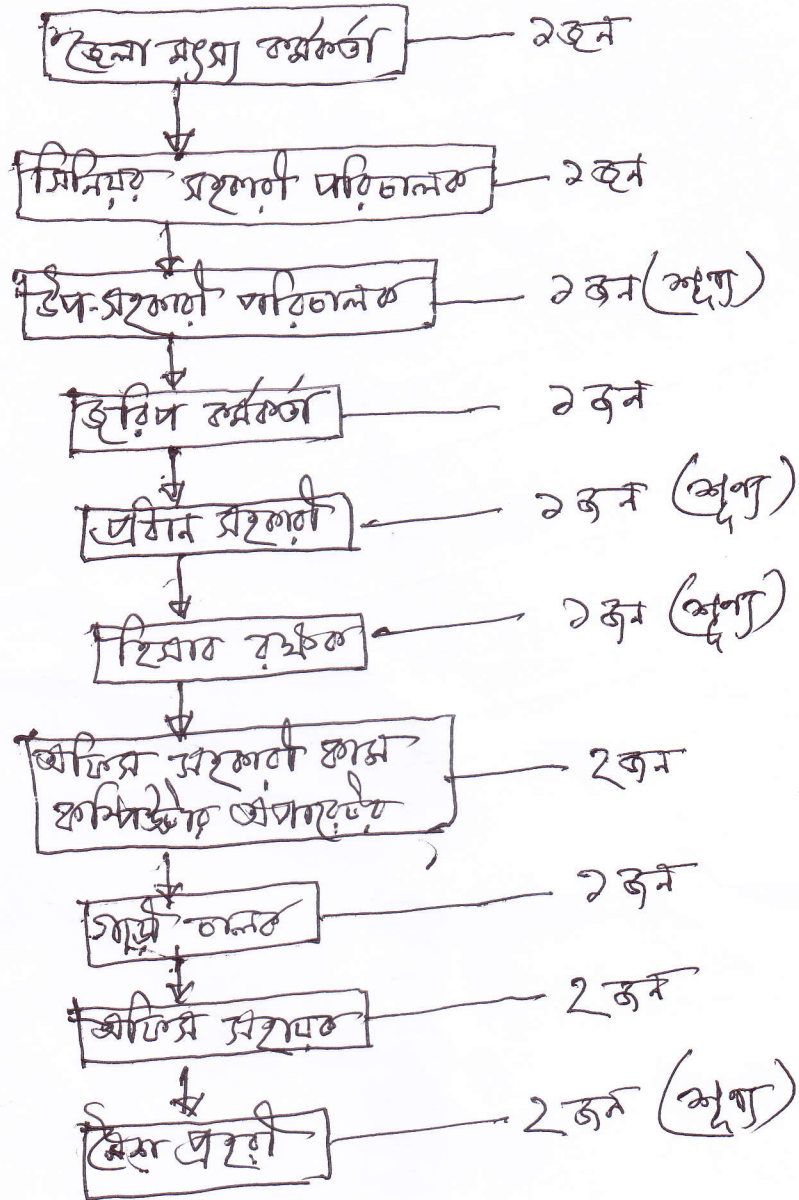 জেলা মৎস্য কর্মকর্তা ১জন
সিনিয়র সহকারী পরিচালক ১জন
উপ-সহকারী পরিচালক ১ জন (শূণ্য)
জরিপ কর্মকর্তা ১ জন
প্রধান সহকারী ১ জন (শূণ্য)
হিসাব রক্ষক ১ জন (শূণ্য)
অফিস সহকারী কাম ২জন
কম্পিউটার অপারেটর
গাড়ী চালক ১ জন
অফিস সহায়ক ২ জন
নৈশ প্রহরী ২ জন (শূণ্য)